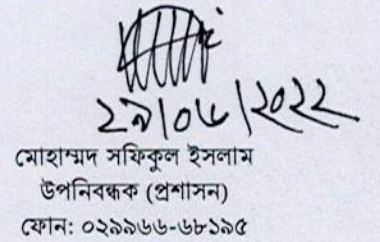 ২৯/০৬/২০২২
মোহাম্মদ সফিকুল ইসলাম
উপনিবন্ধক (প্রশাসন)
ফোন: ০২৯৯৬৬-৬৮১৯৫